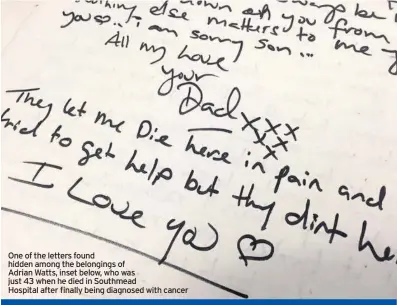 down on you from
nothing else matters to me
you ... I am sorry son ...
All my Love
your
Dad xxx
xx
x
They let me Die here in pain and
tried to get help but thy dint he
I Love yo ♡
One of the letters found
hidden among the belongings of
Adrian Watts, inset below, who was
just 43 when he died in Southmead
Hospital after finally being diagnosed with cancer